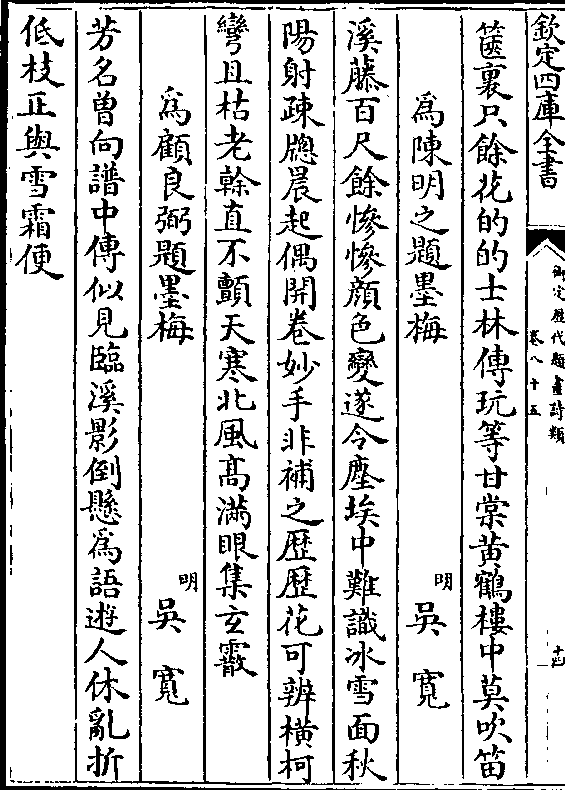 欽定四庫全書
御定歷代題畫詩類
卷八十五
十四
篋裏只餘花的的士林傳玩等甘棠黄鶴樓中莫吹笛
為陳明之題墨梅
明
吳寬
溪藤百尺餘慘慘顔色變遂令塵埃中難識冰雪面秋
陽射疎牕晨起偶開卷妙手非補之歴歴花可辨横柯
彎且枯老榦直不顫天寒北風髙滿眼集玄霰
為顧良弼題墨梅
明
吳寬
芳名曽向譜中傳似見臨溪影倒懸為語逰人休亂折
低枝正與雪霜便